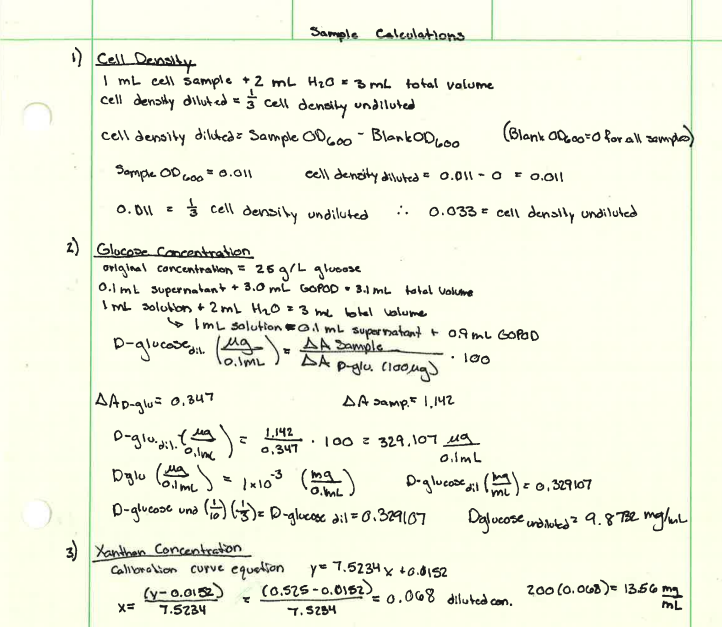 Sample Calculations
1) Cell Density
1 mL cell sample + 2 mL H₂O = 3 mL total volume
cell density diluted = 1/3 cell density undiluted
cell density diluted = Sample OD₆₀₀ - Blank OD₆₀₀ (Blank OD₆₀₀=0 for all samples)
Sample OD₆₀₀ = 0.011 cell density diluted = 0.011 - 0 = 0.011
0.011 = 1/3 cell density undiluted ∴ 0.033 = cell density undiluted
2) Glucose Concentration
original concentration = 25 g/L glucose
0.1 mL supernatant + 3.0 mL GOPOD = 3.1 mL total volume
1 mL solution + 2 mL H₂O = 3 mL total volume
↳ 1 mL solution = 0.1 mL supernatant + 0.9 mL GOPOD
D-glucose dil. (μg/0.1mL) = ΔA sample / ΔA D-glu. (100μg) · 100
ΔA D-glu = 0.347 ΔA samp. = 1.142
D-glu. dil. (μg/0.1mL) = 1.142/0.347 · 100 = 329.107 μg/0.1mL
D glu (μg/0.1mL) = 1×10⁻³ (mg/0.1mL) D-glucose dil (mg/mL) = 0.329107
D-glucose und (1/10)(1/3) = D-glucose dil = 0.329107 D glucose undiluted = 9.8732 mg/mL
3) Xanthan Concentration
Calibration curve equation y = 7.5234x + 0.0152
x = (y-0.0152)/7.5234 = (0.525-0.0152)/7.5234 = 0.068 diluted con. 200(0.068) = 13.56 mg/mL